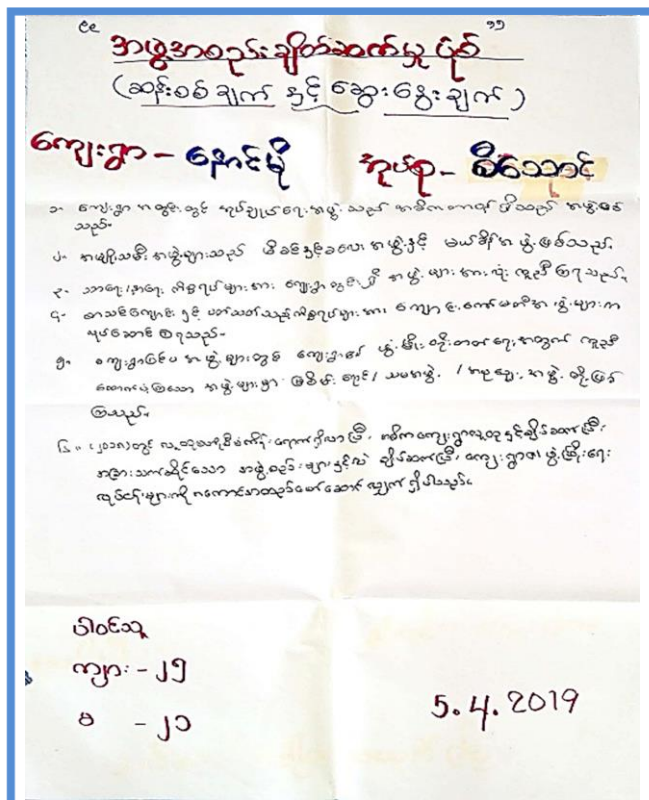 “ အဖွဲ့အစည်းချိတ်ဆက်မှု ပုံစံ ”
(ဆန်းစစ်ချက် နှင့် ဆွေးနွေးချက်)
ကျေးရွာ - နောင်မို အုပ်စု - စီသောင့်
၁။ ကျေးရွာ အတွင်းတွင် အုပ်ချုပ်ရေးအဖွဲ့ သည် အဓိကတာဝန် ရှိသည့် အဖွဲ့ဖြစ်
သည်။
၂။ အမျိုးသမီး အဖွဲ့များသည် မိခင်နှင့်ကလေး အဖွဲ့နှင့် မယ်စိန် အဖွဲ့ဖြစ်သည်။
၃။ သာရေး/နာရေး ကိစ္စရပ်များအား ကျေးရွာတွင်းရှိ အဖွဲ့များအားလုံး ကူညီကြရသည်။
၄။ စာသင်ကျောင်း နှင့် ပတ်သတ်သည့်ကိစ္စရပ်များအား ကျောင်းကော်မတီအဖွဲ့များက
လုပ်ဆောင်ကြရသည်။
၅။ ကျေးရွာပြင်ပ အဖွဲ့များတွင် ကျေးရွာ၏ ဖွံ့ဖြိုးတိုးတတ်ရေးအတွက် ကူညီ
ထောက်ပံ့ကြသော အဖွဲ့များမှာ မြစိမ်းရောင်/ သမအဖွဲ့ / အဖွဲ့ တို့ဖြစ်
ကြသည်။
၆။ (၂၀၁၈)တွင် လူထုဗဟိုပြုစီမံကိန်း ရောက်ရှိလာပြီး၊ အဓိကကျေးရွာလူထုနှင့်ချိတ်ဆက်ပြီး၊
အခြားသက်ဆိုင်သော အဖွဲ့စည်းများနှင့်လဲ ချိတ်ဆက်ပြီး၊ ကျေးရွာဖွံ့ဖြိုးရေး
လုပ်ငန်းများကို အကောင်အထည်ဖော်ဆောင်လျှက် ရှိပါသည်။
ပါဝင်သူ
ကျား - ၂၅
မ - ၂၁
5.4.2019